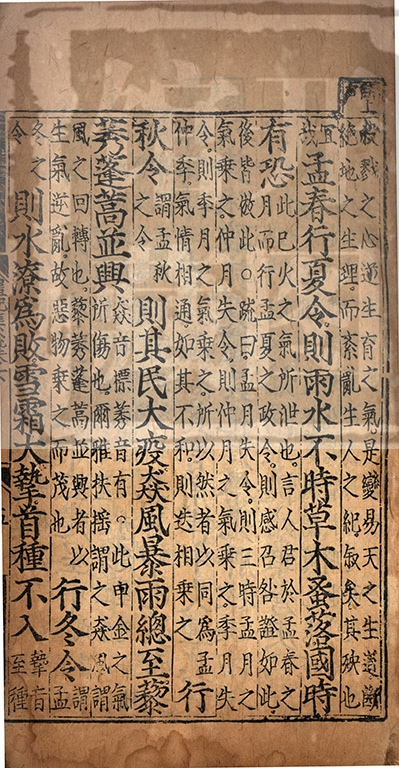 殺戮之心逆生育之氣是變易天之生道斷
絕地之生理而紊亂生人之紀敘矣其殃也
宜哉孟春行夏令則雨水不時草木蚤落國時
有恐此巳火之氣所泄也言人君於孟春之
月而行孟夏之政令則感召咎證如此
後皆倣此○疏曰孟月失令則三時孟月之
氣乘之仲月失令則仲月之氣乘之季月失
令則季月之氣乘之所以然者以同為孟
仲季氣情相通如其不和則迭相乘之行
秋令謂孟秋之令則其民大疫猋風暴雨總至藜
莠蓬蒿並興猋音標莠音有○此申金之氣
所傷也爾雅扶搖謂之猋風謂
風之回轉也藜莠蓬蒿並興者以
生氣逆亂故惡物乘之而茂也行冬令謂孟
冬之令則水潦為敗雪霜大摯首種不入摯音至種